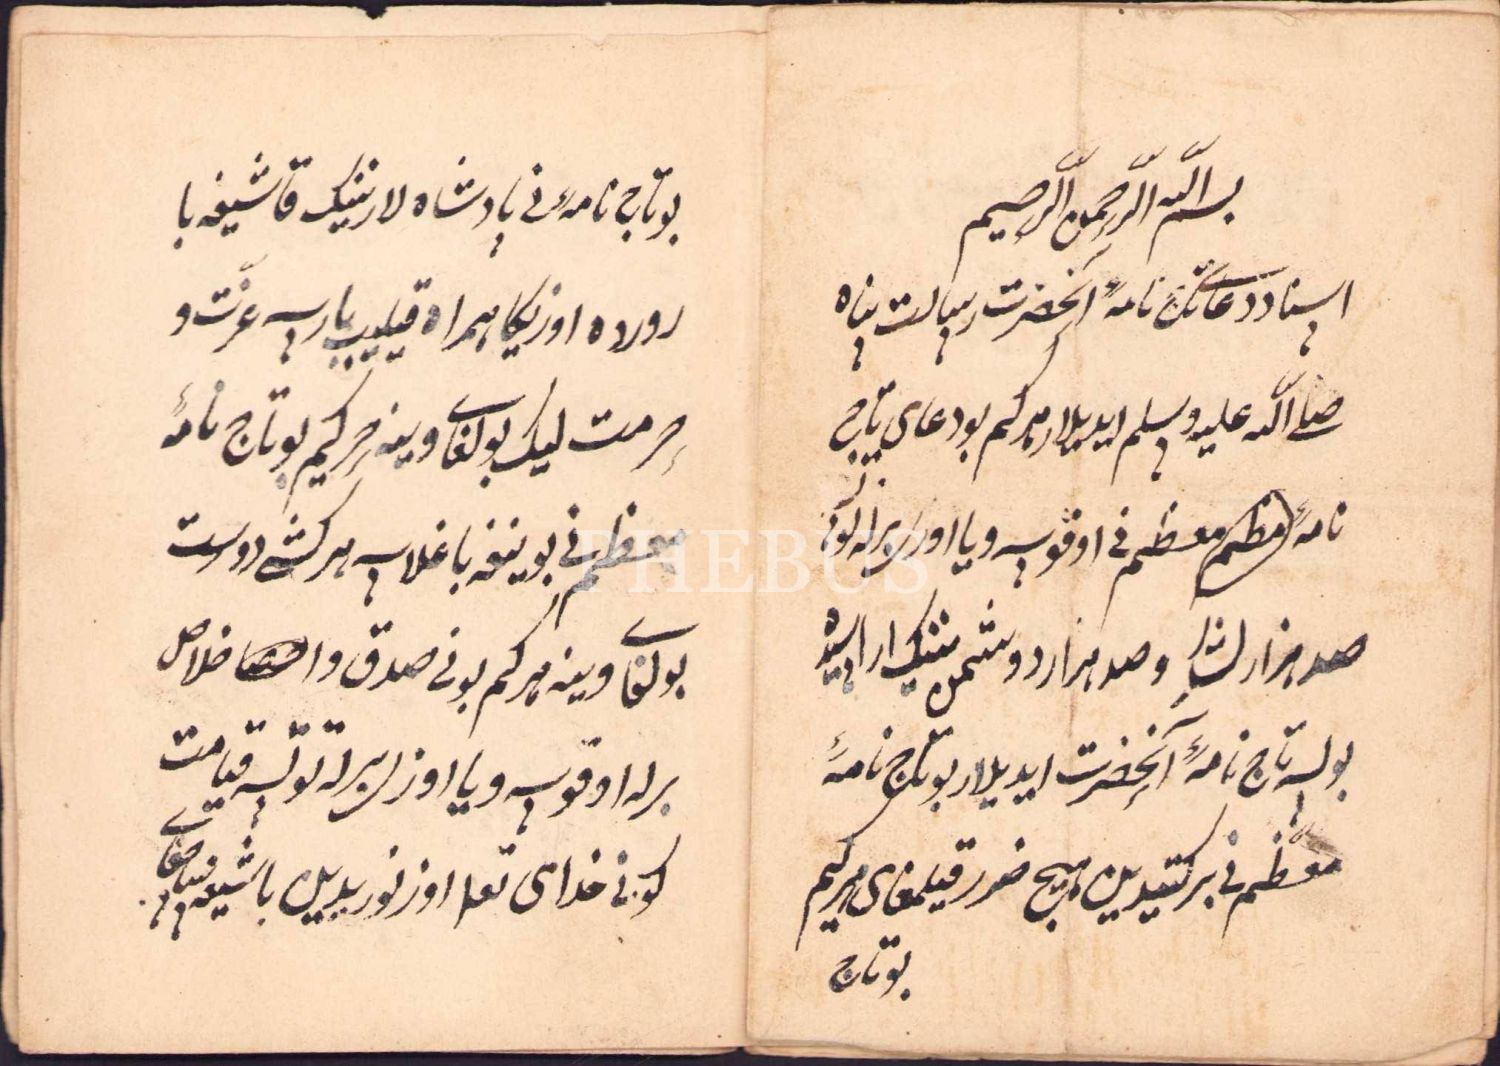 بسم الله الرحمن الرحيم
اسناد دعای تاج نامهٔ آنحضرت رسالت پناه
صلے الله علیه وسلم ایدیلار هرکیم بو دعای تاج
نامهٔ معظم نی اوقوسه ویا اوزی برله
صد هزار لشکر و صد هزار دوشمن ننیک اراسیده
بولسه تاج نامهٔ آنحضرت ایدیلار بو تاج نامهٔ
معظم نی برکتیدین هیچ ضرر قیلمغای هرکیم
بو تاج
بو تاج نامهٔ نی پادشاه لارنینک قاشیغه با
رورده اوزیکا همراه قیلیب بارسه عزت و
حرمت لیک بولغای وینه هرکیم بو تاج نامهٔ
معظم نی بوینیغه باغلاسه هر کشے دوست
بولغای وینه هرکم بونی صدق و اخلاص
برله اوقوسه ویا اوزی برله توتسه قیامت
کونی خدای تعالی اوز نوریدین باشیغه
PHEBUS